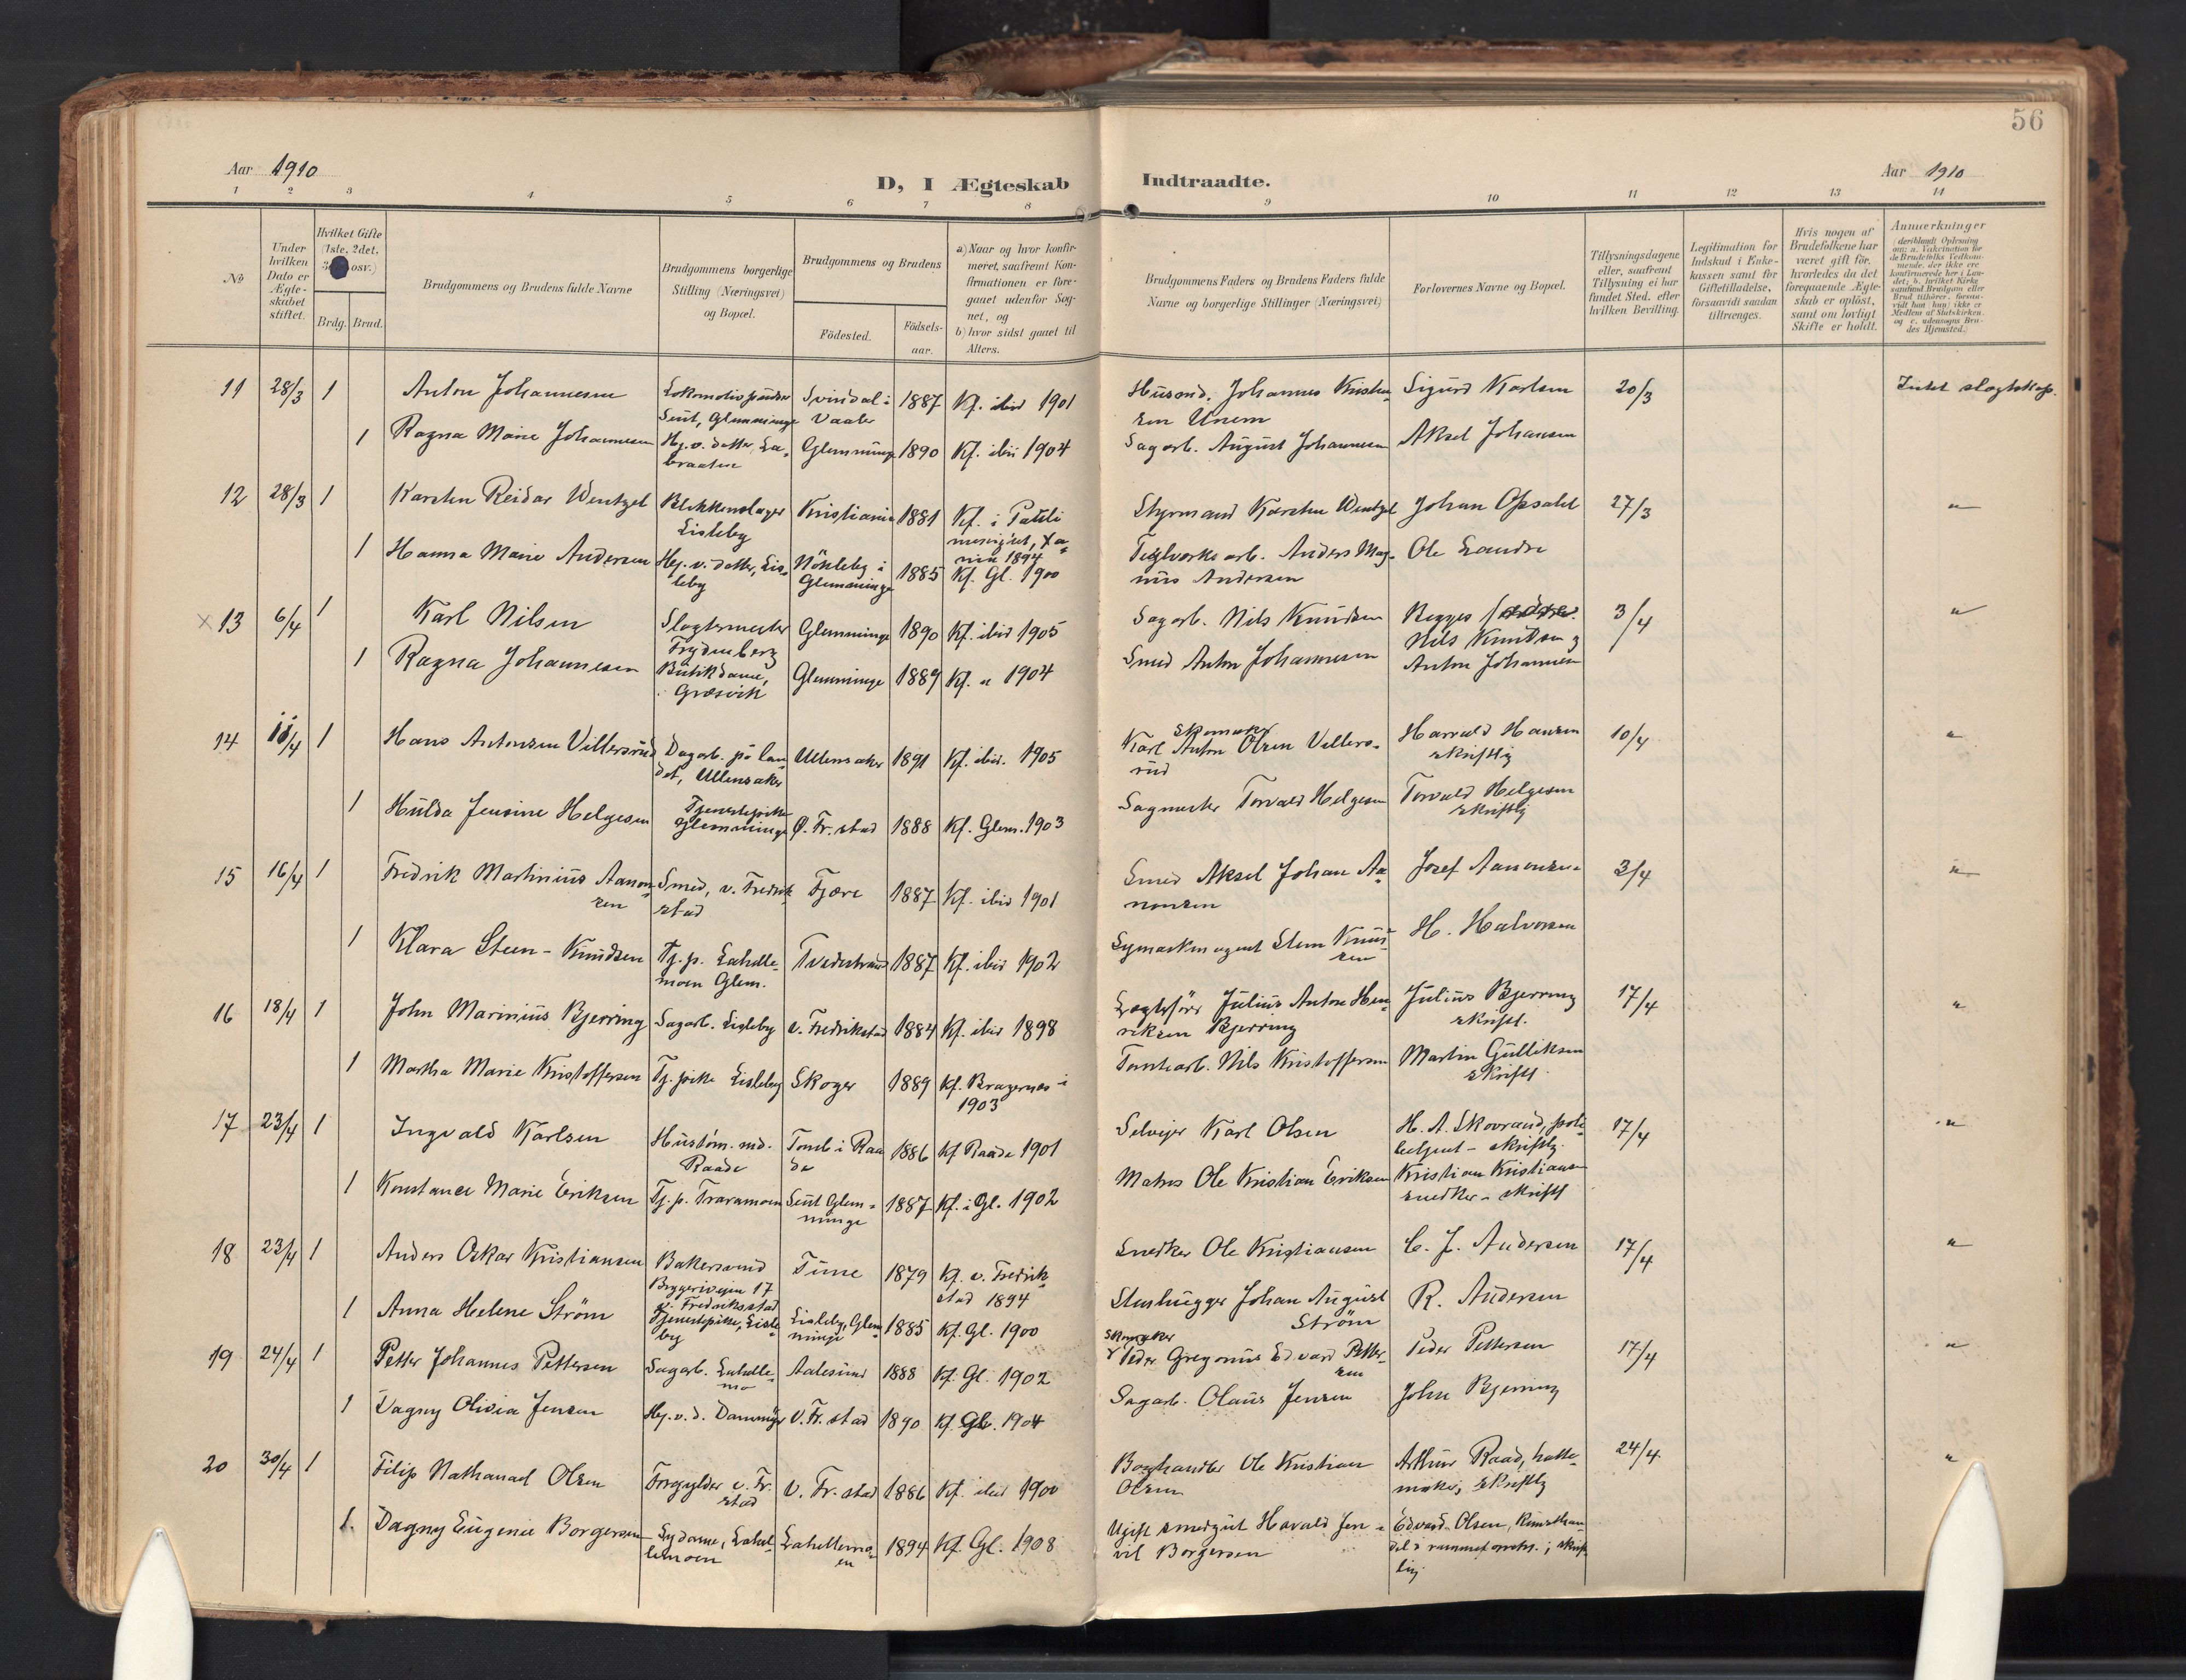 56
Aar 1910
D, I Ægteskab
Indtraadte.
Aar 1910
1 2 3 4 5 6 7 8 9 10 11 12 13 14
No
Under hvilken Dato er Ægteskabet stiftet.
Hvilket Gifte (1ste, 2det, osv.)
Brdg. Brud.
Brudgommens og Brudens fulde Navne
Brudgommens borgerlige Stilling (Næringsvei) og Bopæl.
Brudgommens og Brudens
Födested.
Födselsaar.
a) Naar og hvor konfirmeret, saafremt Konfirmationen er foregaaet udenfor Sognet, og
b) hvor sidst gaaet til Alters.
Brudgommens Faders og Brudens Faders fulde Navne og borgerlige Stillinger (Næringsvei)
Forlovernes Navne og Bopæl.
Tillysningsdagene eller, saafremt Tillysning ei har fundet Sted, efter hvilken Bevilling.
Legitimation for Indskud i Enkekassen samt for Giftetilladelse, forsaavidt saadan tiltrænges.
Hvis nogen af Brudefolkene har været gift för, hvorledes da det foregaaende Ægteskab er oplöst, samt om lovligt Skifte er holdt.
Anmærkninger
(deriblandt Oplysning om: a. Vakcination for de Brudefolks Vedkommende, der ikke ere konfirmerede her i Landet; b. hvilket Kirkesamfund Brudgom eller Brud tilhörer, forsaavidt han (hun) ikke er Medlem af Statskirken, og c. udensogns Brudes Hjemsted.)
11 28/3 1 Anton Johannesen Lokomotivpudser Seut, Glemminge Svindal i Vaaler 1887 Kf. ibid 1901 Husmd. Johannes Kristensen Unem Sigurd Karlsen 20/3 Intet slagtskap.
1 Ragna Marie Johannesen Hj. v. datter, Labraaten Glemminge 1890 Kf. ibid 1904 Sagarb. August Johannesen Aksel Johansen
12 28/3 1 Karsten Reidar Wentzel Blikkenslager Lisleby Kristiania 1881 Kf. i 1894 Styrmand Karsten Wentzel Johan Opsahl 27/3 "
1 Hanna Marie Andersen Hj. v. datter, Lisleby Nökleby i Glemminge 1885 Kf. Gl. 1900 Teglverks arb. Anders Magnus Andersen Ole Sandre
× 13 6/4 1 Karl Nilsen Slagtermester Frydenberg Glemminge 1890 Kf. ibid 1905 Sagarb. Nils Knudsen Begges Nils Knudsen og 3/4 "
1 Ragna Johannesen Butikdame, Græsvik Glemminge 1889 Kf. " 1904 Smed Anton Johannesen Anton Johannesen
14 11/4 1 Hans Antonsen Villersrud Dagarb. på landet, Ullensaker Ullensaker 1891 Kf. ibid. 1905 Skomaker Karl Anton Olsen Villersrud Harald Hansen skriftlig 10/4 "
1 Hulda Jensine Helgesen Tjenestepike Glemminge Ö. Fr.stad 1888 Kf. Glem. 1903 Sagmester Torvald Helgesen Torvald Helgesen skriftlig
15 16/4 1 Fredrik Martinius Aanonsen Smed, v. Fredrikstad Fjære 1887 Kf. ibid 1901 Smed Aksel Johan Aanonsen Josef Aanonsen 3/4 "
1 Klara Steen-Knudsen Tj. p. Lahellemoen Glem. Tvedestrand 1887 Kf. ibid 1902 Symaskinagent Steen Knudsen H. Halvorsen
16 18/4 1 John Marinius Bjerring Sagarb. Lisleby v. Fredrikstad 1884 Kf. ibid 1898 Lægtefører Julius Anton Henriksen Bjerring Julius Bjerring skriftl. 17/4 "
1 Martha Marie Kristoffersen Tj. pike Lisleby Skoger 1889 Kf. Bragernes i 1903 Tomtearb. Nils Kristoffersen Martin Gulliksen skriftl.
17 23/4 1 Ingvald Karlsen Hustöm. md. Raade Tomb i Raade 1886 Kf Raade 1901 Selveier Karl Olsen H. A. Skovrand, politibetjent - skriftlig. 17/4 "
1 Konstance Marie Eriksen Tj. p. Traramoen Seut Glemminge 1887 Kf. i Gl. 1902 Matros Ole Kristian Eriksen Kristian Kristiansen snedker - skriftl
18 23/4 1 Anders Oskar Kristiansen Bakersvend Bryggeriveien 17 v. Fredriksstad Tune 1879 Kf. v. Fredrikstad 1894 Snedker Ole Kristiansen C. J. Andersen 17/4 "
1 Anna Helene Ström Tjenestepike, Lisleby Lisleby, Glemminge 1885 Kf. Gl. 1900 Stenhugger Johan August Ström R. Andersen
19 24/4 1 Petter Johannes Pettersen Sagarb. Lahellemo Aalesund 1888 Kf. Gl. 1902 Skomaker Peder Gregorius Edvard Pettersen Peder Pettersen 17/4 "
1 Dagny Olivia Jensen Hj. v. d. Dammyr V. Fr. stad 1890 Kf. Gl. 1904 Sagarb. Olaus Jensen John Bjerring
20 30/4 1 Filip Nathanael Olsen Forgylder v. Fr. stad V. Fr. stad 1886 Kf. ibid 1900 Boghandler Ole Kristian Olsen Arthur Raad, hattemaker, skriftlig 24/4 "
1. Dagny Eugenie Borgersen Sydame, Lahellemoen Lahellemoen 1894 Kf. Gl. 1908 Ugift smedgut Havald Jenvil Borgersen Edvard Olsen, kunsthandel ; skriftlig